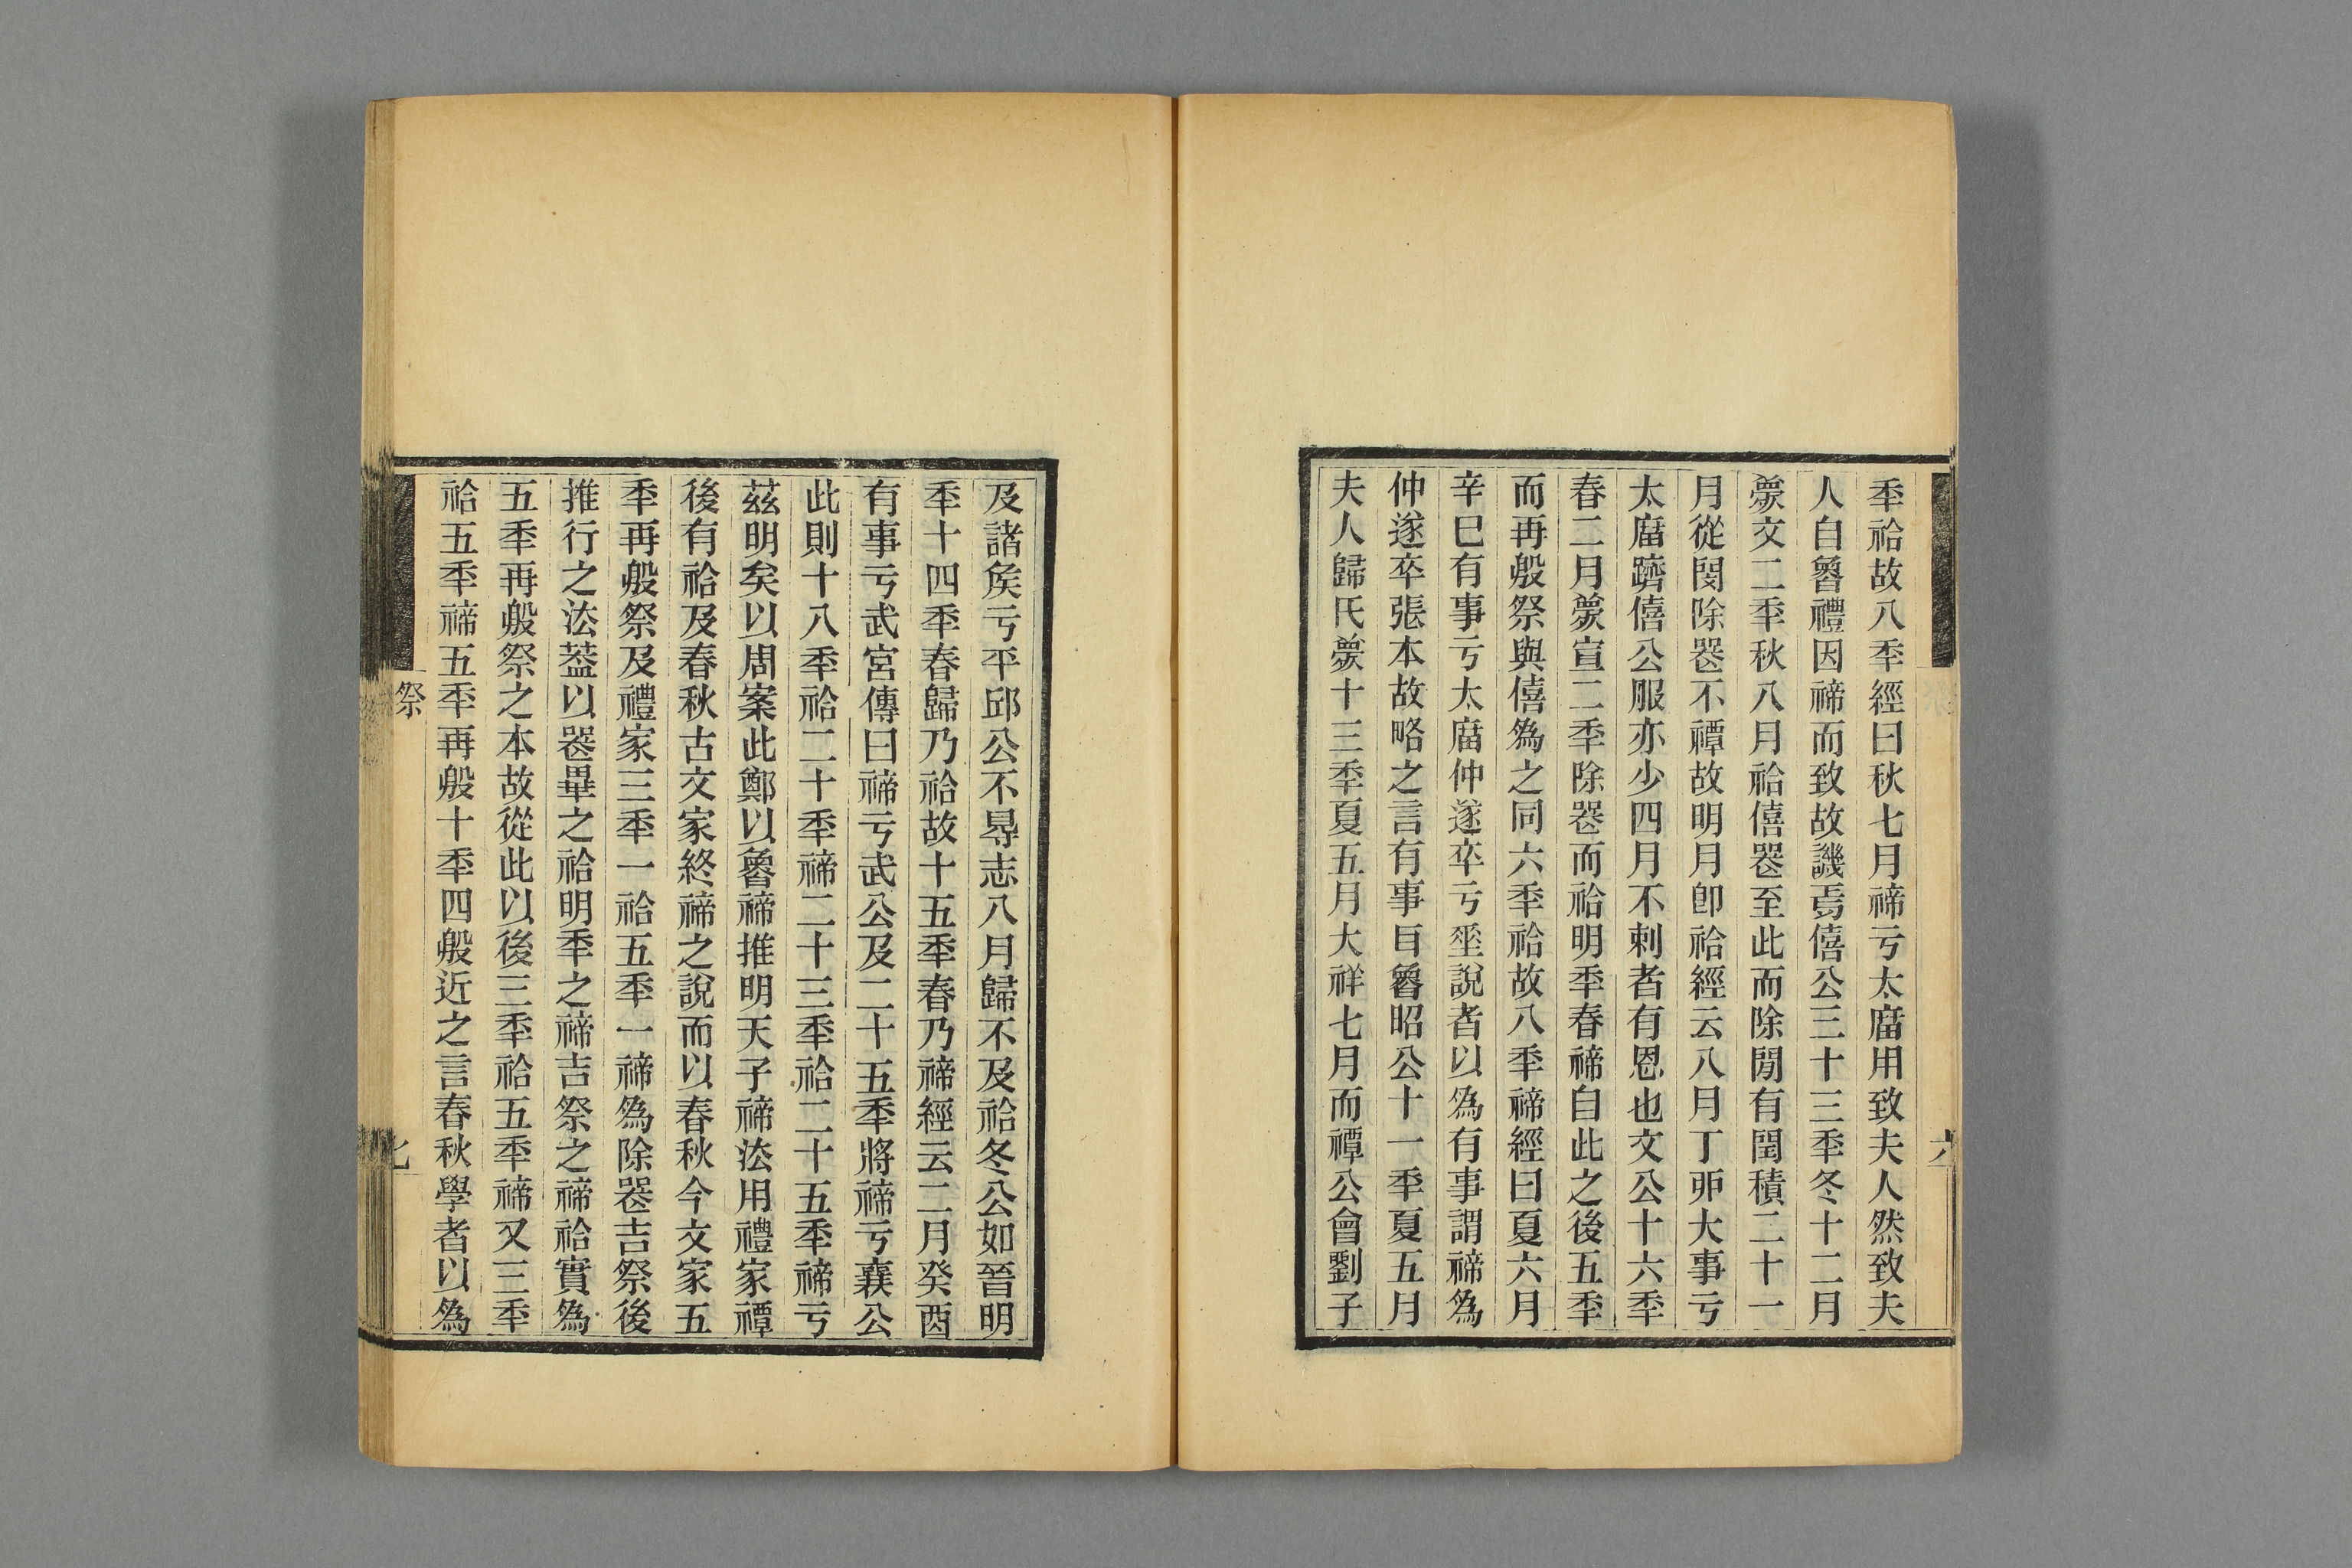 秊祫故八秊經曰秋七月禘亏太庿用致夫人然致夫
人自魯禮因禘而致故譏焉僖公三十三秊冬十二月
薨文二秊秋八月祫僖喪至此而除閒有閏積二十一
月從閔除喪不禫故明月卽祫經云八月丁丣大事亏
太庿躋僖公服亦少四月不刺者有恩也文公十六秊
春二月薨宣二秊除喪而祫明秊春禘自此之後五秊
而再殷祭與僖為之同六秊祫故八秊禘經曰夏六月
辛巳有事亏太庿仲遂卒亏垂說者以為有事謂禘為
仲遂卒張本故略之言有事耳魯昭公十一秊夏五月
夫人歸氏薨十三秊夏五月大祥七月而禫公會劉子
及諸矦亏平邱公不㝵志八月歸不及祫冬公如晉明
秊十四秊春歸乃祫故十五秊春乃禘經云二月癸丣
有事亏武宮傳曰禘亏武公及二十五秊將禘亏襄公
此則十八秊祫二十秊禘二十三秊祫二十五秊禘亏
茲明矣以周案此鄭以魯禘推明天子禘法用禮家禫
後有祫及春秋古文家終禘之說而以春秋今文家五
秊再殷祭及禮家三秊一祫五秊一禘為除喪吉祭後
推行之法葢以喪畢之祫明秊之禘吉祭之禘祫實為
五秊再殷祭之本故從此以後三秊祫五秊禘又三秊
祫五秊禘五秊再殷十秊四殷近之言春秋學者以為
祭
七